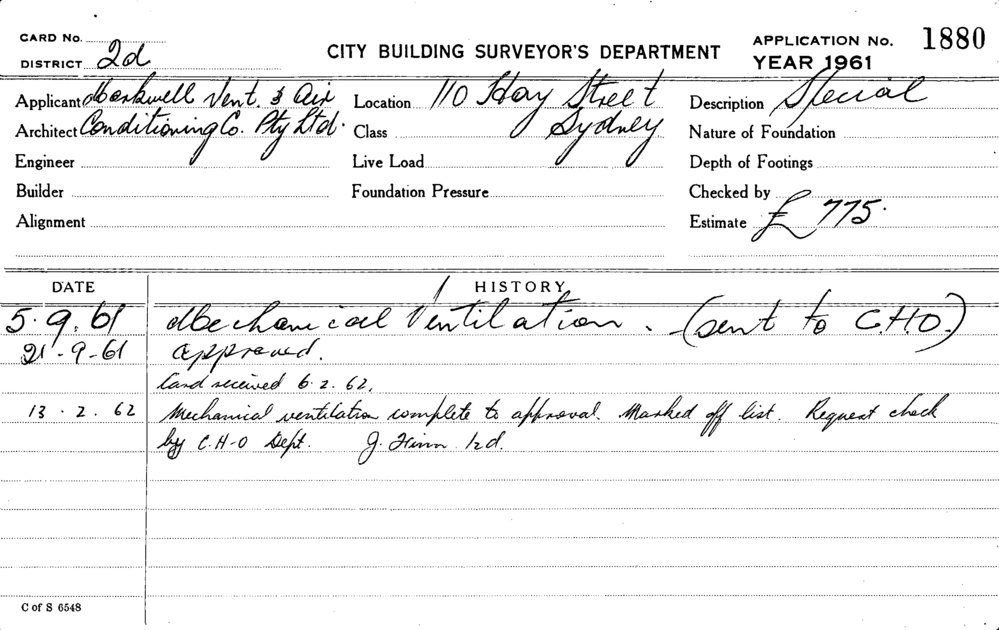 CARD No.
CITY BUILDING SURVEYOR'S DEPARTMENT
APPLICATION No. 1880
DISTRICT 2d
YEAR 1961
Applicant Markwell Vent. & Air Location 110 Hay Street Description Special
Architect Conditioning Co. Pty Ltd. Class Sydney Nature of Foundation
Engineer Live Load Depth of Footings
Builder Foundation Pressure Checked by
Alignment Estimate £775.
DATE HISTORY
5.9.61 Mechanical Ventilation. (sent to C.H.O.)
21-9-61 approved.
Card received 6.2.62.
13.2.62 Mechanical ventilation complete to approval. Marked off list. Request check
by C.H-O Dept. J. Finn
C of S 6548